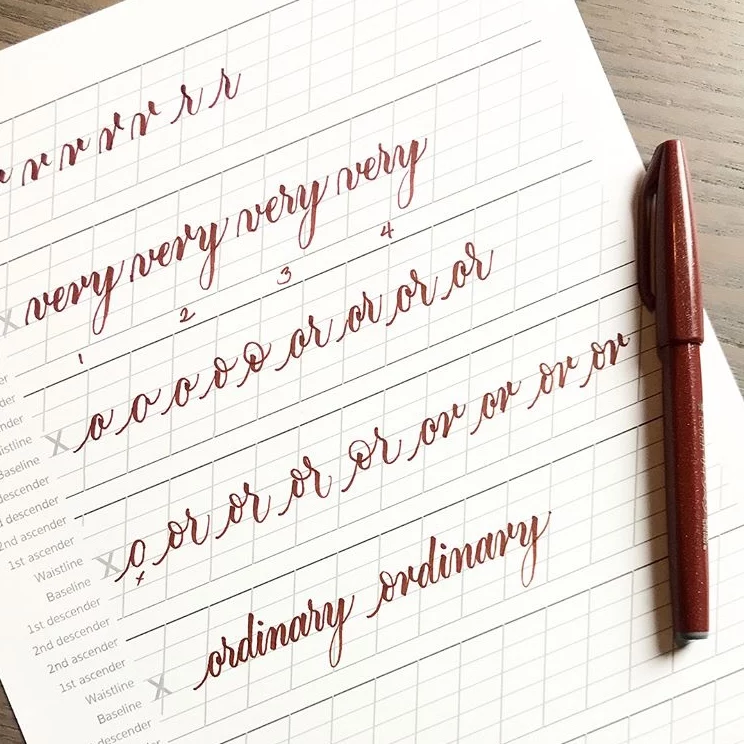 r r r r r r
X very very very very
1 2 3 4
X o o o o o or or or or
Baseline
descender
descender
2nd ascender
1st ascender
Waistline
X o or or or or or or or or
x
Baseline
1st descender
2nd descender
2nd ascender
1st ascender
Waistline
X ordinary ordinary
Baseline
descender